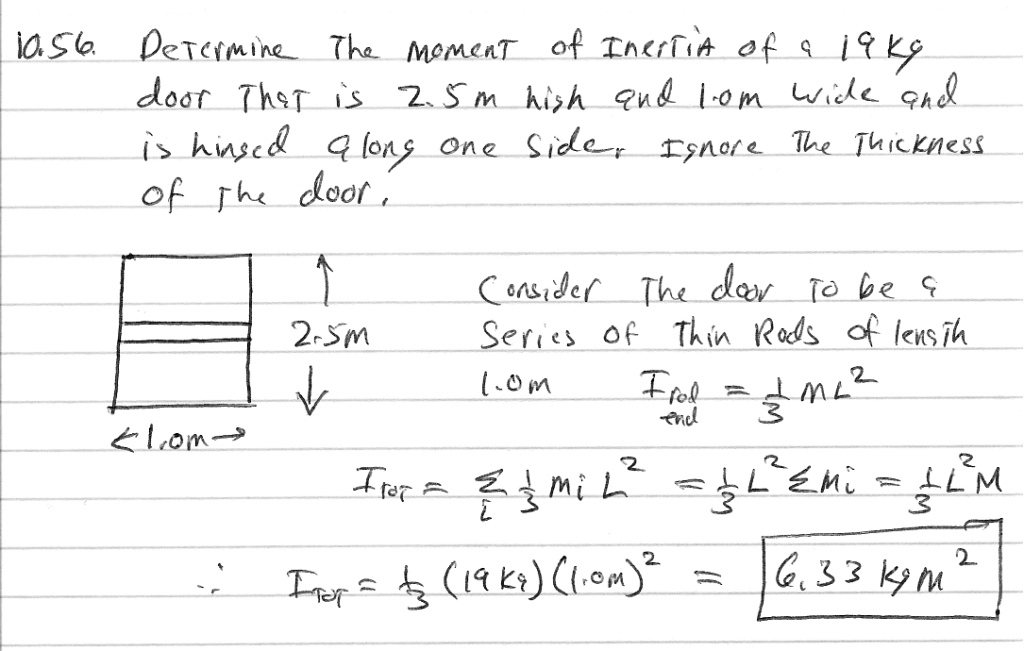 10.56. Determine The moment of Inertia of a 19 kg
door That is 2.5m high and 1.0m wide and
is hinged along one side. Ignore The Thickness
of The door.
Consider The door To be a
2.5m Series of Thin Rods of length
1.0m I rod end = 1/3 ML²
<1.0m→
I_TOT = Σ_i 1/3 mi L² = 1/3 L² Σ mi = 1/3 L² M
∴ I_TOT = 1/3 (19 kg) (1.0m)² = 6.33 kg m²